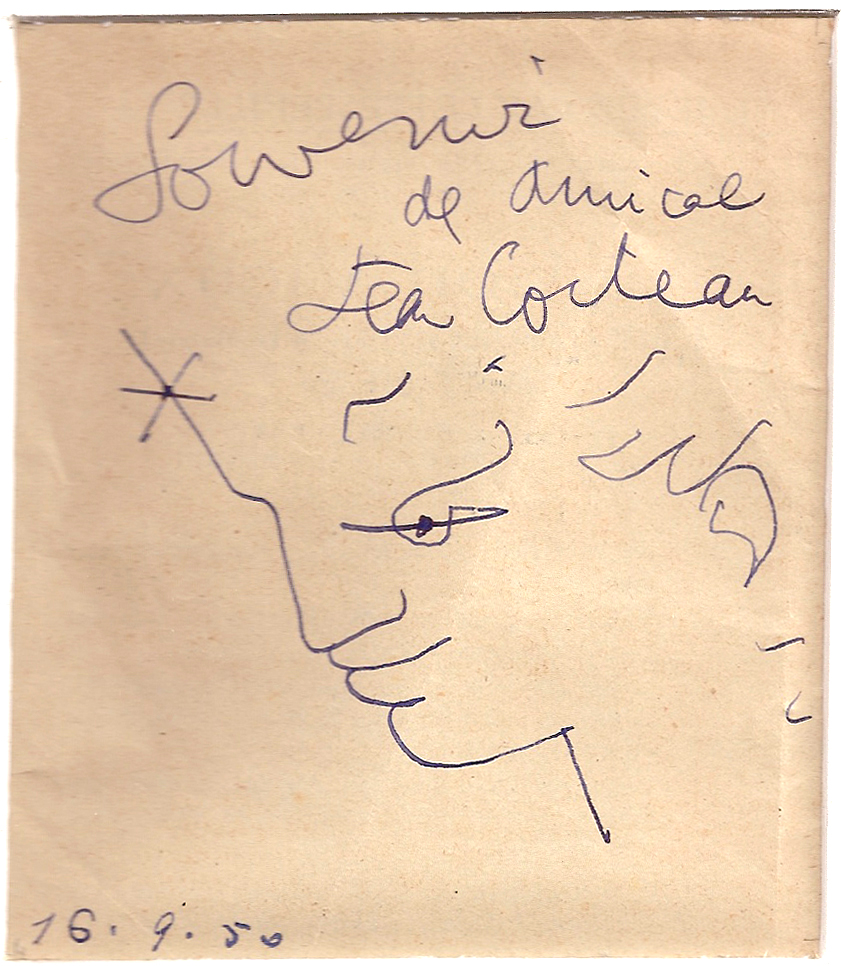 Souvenir
de amical
Jean Cocteau
16. 9. 50